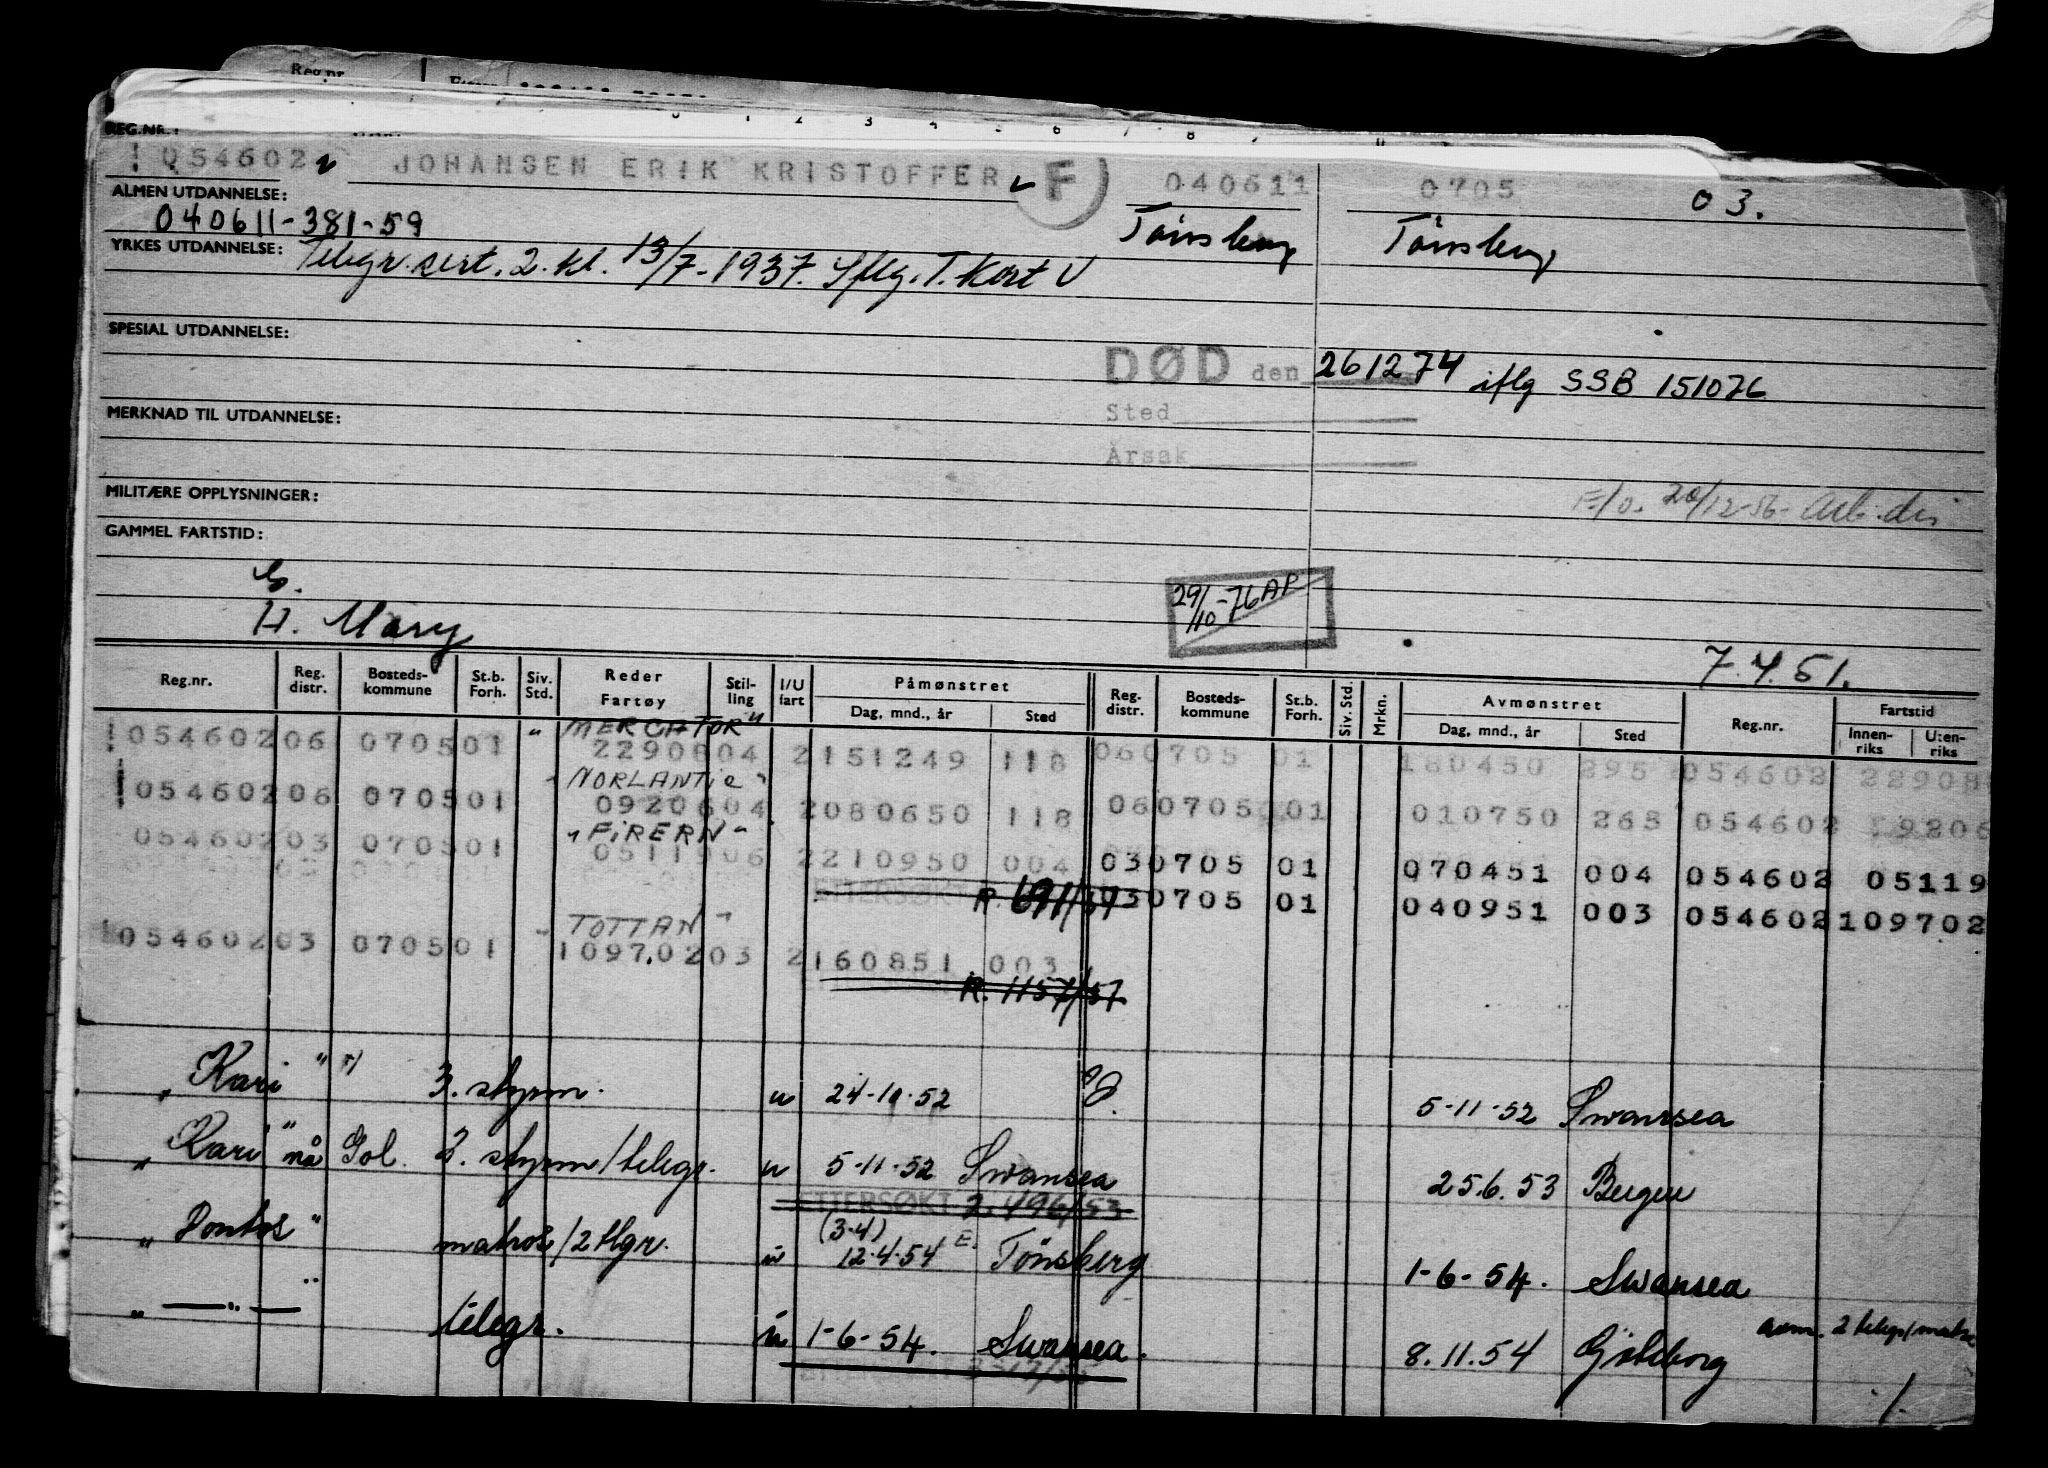 Reg.nr.
1 2 3 4 5 6 7 8
REG.NR.:
! 054602 JOHANSEN ERIK KRISTOFFER F 040611 0705 03.
ALMEN UTDANNELSE:
040611-381-59 Tønsberg Tønsberg
YRKES UTDANNELSE: Telegr.sert. 2. kl. 13/7-1937. Iflg. T. Kort V
SPESIAL UTDANNELSE:
DØD den 261274 iflg SSB 151076
MERKNAD TIL UTDANNELSE:
Sted
Årsak
MILITÆRE OPPLYSNINGER:
F/o. 20/12-56-
GAMMEL FARTSTID:
G.
29/10-76 AP
H. Mary
7.4.51.
Reg.nr. Reg. distr. Bosteds-kommune St.b. Forh. Siv. Std. Reder Fartøy Stil-ling I/U fart Påmønstret Dag, mnd., år Sted Reg. distr. Bosteds-kommune St.b. Forh. Siv. Std. Mrkn. Avmønstret Dag, mnd., år Sted Reg.nr. Fartstid Innen-riks Uten-riks
"MERCATOR"
!054602 06 0705 01 22908 04 2 151249 118 06 0705 01 180450 295 054602 22908
"NORLANTIC"
!054602 06 0705 01 09206 04 2 080650 118 06 0705 01 010750 265 054602 09206
"FIRERN"
054602 03 0705 01 05119 06 2 210950 004 03 0705 01 070451 004 054602 05119
ETTERSØKT R. 691/57 03 0705 01 040951 003 054602 109702
"TOTTAN"
054602 03 0705 01 1097.02 03 2 160851 003
R. 1157/57
"Kari" 3. styrm. u 24-10-52 5-11-52 Swansea
"Kari" nå Gol. 2. styrm/telegr. u 5-11-52 Swansea 25.6.53 Bergen
ETTERSØKT 2. 496/53
(3-4)
"Pontos" matros/2 tlgr. u 12-4-54 E. Tönsberg 1-6-54. Swansea
avm. 2 telegr/matr
" — " — telegr. u 1-6-54. Swansea. 8.11.54 Göteborg